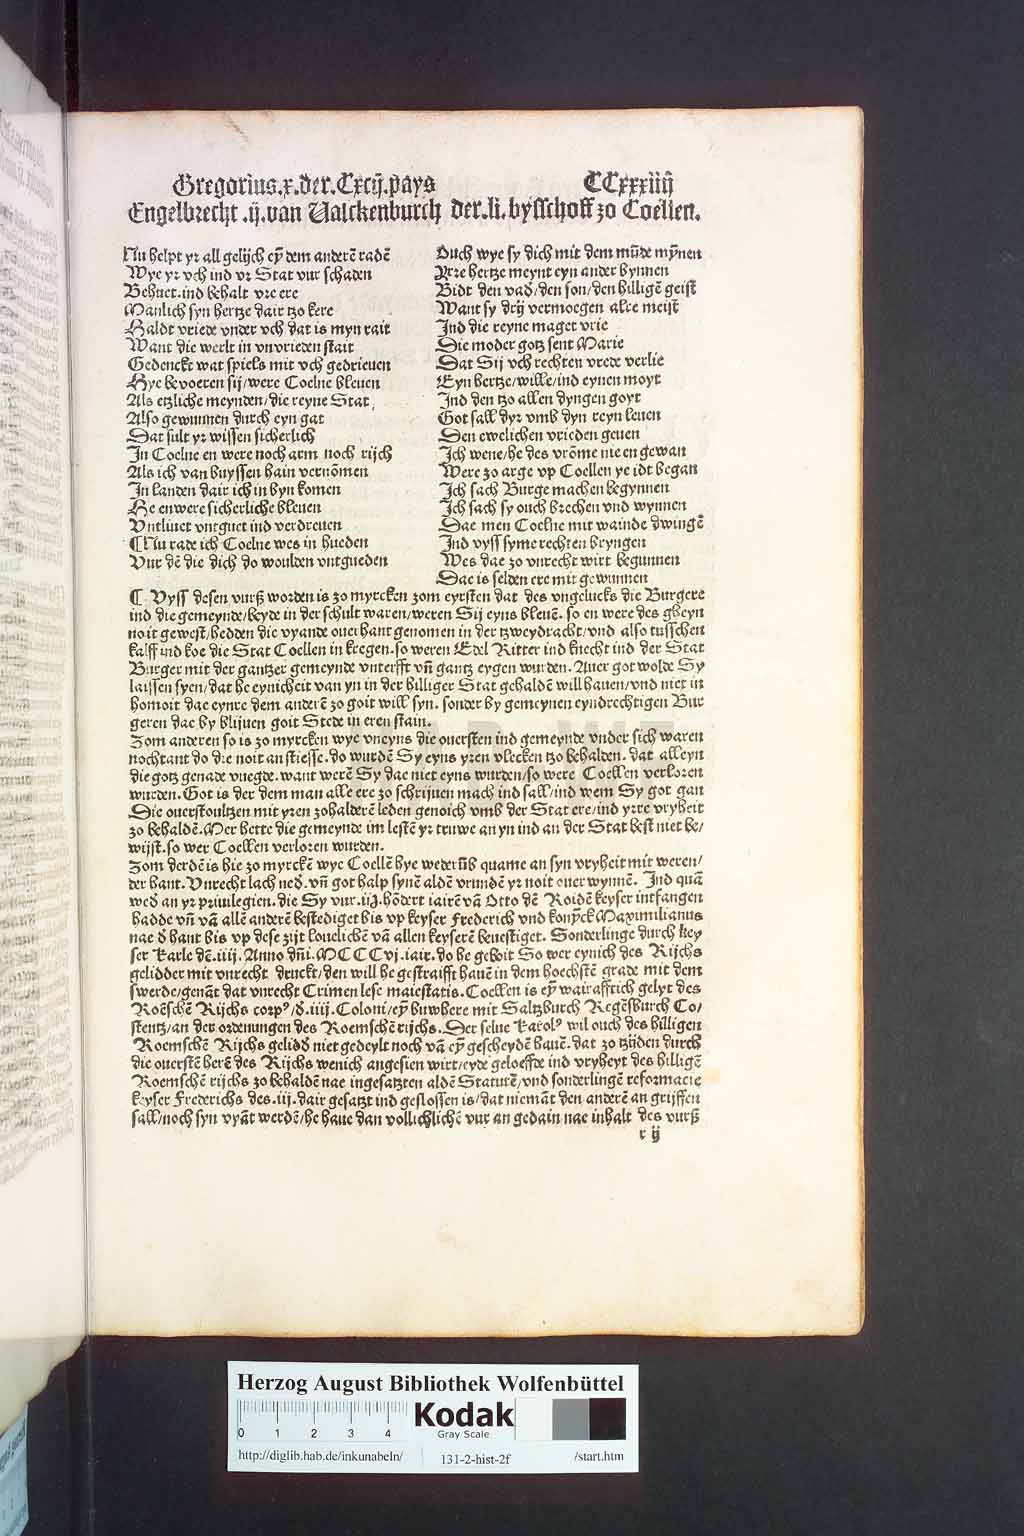 Gregorius.x.der.Cxcij.pays CCxxxiiij
Engelbrecht .ij.van Valckenburch der.li.bysschoff zo Coellen.
Nu helpt yr all gelijch eȳ dem anderē radē
Wye yr vch ind vr Stat vur schaden
Behuet.ind behalt vre ere
Manlich syn hertze dair tzo kere
Haldt vriede vnder vch dat is myn rait
Want die werlt in vnvrieden stait
Gedenckt wat spiels mit vch gedrieuen
Hye bevoeren sij/were Coelne bleuen
Als etzliche meynden/die reyne Stat
Also gewunnen durch eyn gat
Dat sult yr wissen sicherlich
In Coelne en were noch arm noch rijch
Als ich van buyssen hain vernōmen
In landen dair ich in byn komen
He enwere sicherliche bleuen
Vntlijuet vntguet ind verdreuen
¶Nu rade ich Coelne wes in hueden
Vur dē die dich do woulden vntgueden
Ouch wye sy dich mit dem mūde mȳnen
Yrre hertze meynt eyn ander bynnen
Bidt den vad/den son/den hilligē geist
Want sy drij vermoegen alre meist
Ind die reyne maget vrie
Die moder gotz sent Marie
Dat Sij vch rechten vrede verlie
Eyn hertze/wille/ind eynen moyt
Ind den tzo allen dyngen goyt
Got sall dyr vmb dyn reyn leuen
Den ewelichen vrieden geuen
Ich wene/he des vrōme nie en gewan
Were zo arge vp Coellen ye idt began
Ich sach Burge machen begynnen
Ich sach sy ouch brechen vnd wynnen
Dae men Coelne mit wainde dwingē
Ind vyss syme rechten bryngen
Wes dae zo vnrecht wirt begunnen
Dae is selden ere mit gewunnen
¶ Vyss desen vurß worden is zo myrcken zom eyrsten dat des vngelucks die Burgere
ind die gemeynde/beyde in der schult waren/weren Sij eyns bleuē. so en were des gheyn
noit gewest/hedden die vyande ouerhant genomen in der tzweydracht/vnd also tusschen
kalff ind koe die Stat Coellen in kregen.so weren Edel Ritter ind knecht ind der Stat
Burger mit der gantzer gemeynde vnterfft vñ gantz eygen wurden. Auer got wolde Sy
laissen syen/dat he eynicheit van yn in der hilliger Stat gehaldē will hauen/vnd niet in
homoit dae eynre dem anderē zo goit will syn. sonder by gemeynen eyndrechtigen Bur
geren dae by blijuen goit Stede in eren stain.
Zom anderen so is zo myrcken wye vneyns die ouersten ind gemeynde vnder sich waren
nochtant do die noit an stiesse.do wurdē Sy eyns yren vlecken tzo behalden. dat alleyn
die gotz genade vuegde.want werē Sy dae niet eyns wurden/so were Coellen verloren
wurden. Got is der dem man alle ere zo schrijuen mach ind sall/ind wem Sy got gan
Die ouerstoultzen mit yren zohalderē leden genoich vmb der Stat ere/ind yrre vryheit
zo behaldē.Mer hette die gemeynde im lestē yr truwe an yn ind an der Stat best niet be/
wijst.so wer Coellen verloren wurden.
Zom derdē is hie zo myrckē wye Coellē bye weder ūb quame an syn vryheit mit weren/
der hant. Vnrecht lach ned̄. vñ got halp synē aldē vrundē yr noit ouerwynnē. Ind quā
wed̄ an yr priuilegien.die Sy vur.iij.hōdert iairē vā Otto dē Roidē keyser intfangen
hadde vñ vā allē anderē bestediget bis vp keyser Frederich vnd konȳck Maximilianus
nae d̄ hant bis vp dese zijt louelichē vā allen keyserē beuestiget. Sonderlinge durch key
ser Karle dē.iiij. Anno dñi.MCCCvj.iair.do he geboit So wer eynich des Rijchs
gelidder mit vnrecht druckt/den will he gestraifft hauē in dem hoechstē grade mit dem
swerde/genāt dat vnrecht Crimen lese maiestatis.Coellen is eȳ wairafftich gelyt des
Roēschē Rijchs corp⁹/d̄.iiij.Coloni/eȳ buwhere mit Saltzburch Regēsburch Co/
stentz/an der ordenungen des Roemschē rijchs. Der selue Karol⁹ wil ouch des hilligen
Roemschē Rijchs gelidd̄ niet gedeylt noch vā eȳ gescheydē hauē. dat zo tzijden durch
die ouerstē herē des Rijchs wenich angesien wirt/eyde geloeffde ind vryheyt des hilligē
Roemschē rijchs zo behaldē nae ingesatzten aldē Statutē/vnd sonderlingē reformacie
keyser Frederichs des.iij.dair gesatzt ind geslossen is/dat niemāt den anderē an grijffen
sall/noch syn vyāt werdē/he haue dan vollichlichē vur an gedain nae inhalt des vurß
r ij
Herzog August Bibliothek Wolfenbüttel
0 1 2 3 4 Kodak
Gray Scale
http://diglib.hab.de/inkunabeln/ 131-2-hist-2f /start.htm